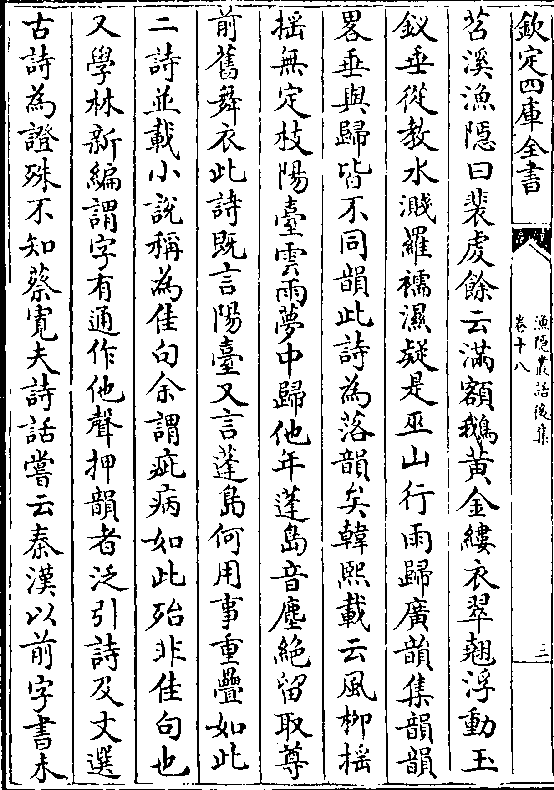 欽定四庫全書
漁隱叢話後集
卷十八
三
苕溪漁隱曰裴虔餘云滿額鵝黄金縷衣翠翹浮動玉
釵垂從教水濺羅襦濕疑是巫山行雨歸廣韻集韻韻
畧垂與歸皆不同韻此詩為落韻矣韓熙載云風柳揺
揺無定枝陽臺雲雨夢中歸他年蓬島音塵絶留取尊
前舊舞衣此詩既言陽臺又言蓬島何用事重疊如此
二詩並載小說稱為佳句余謂疵病如此殆非佳句也
又學林新編謂字有通作他聲押韻者泛引詩及文選
古詩為證殊不知蔡寛夫詩話嘗云秦漢以前字書未